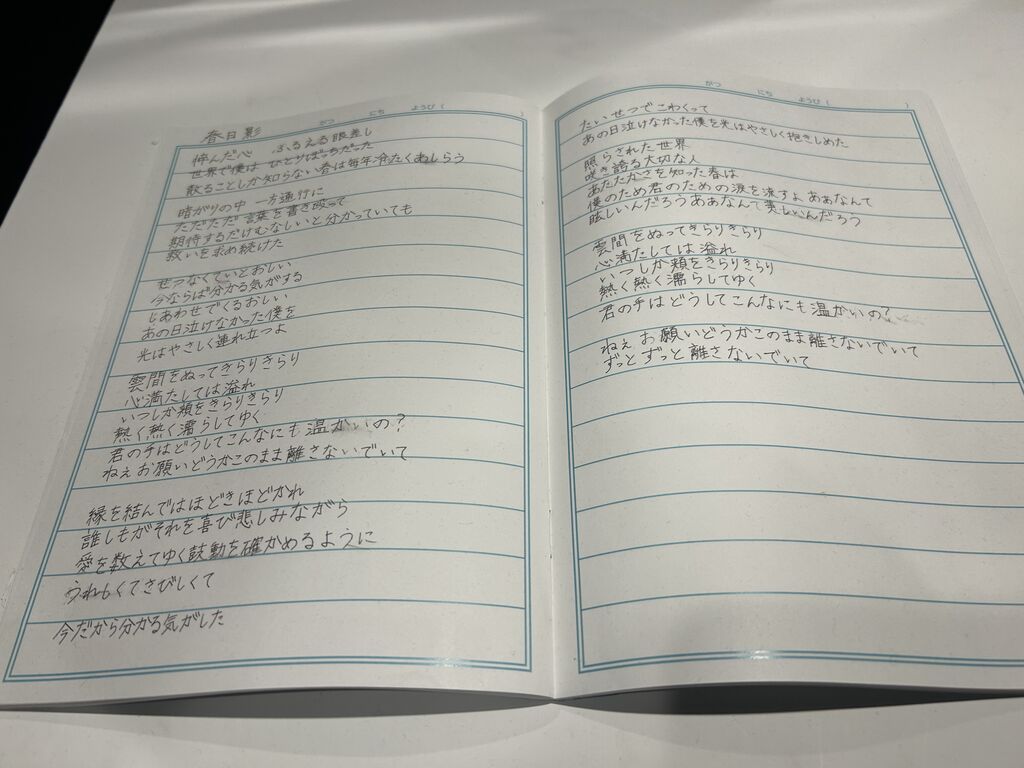 がつ にち ようび ( )
春日影
悴んだ心 ふるえる眼差し
世界で僕は ひとりぼっちだった
散ることしか知らない春は毎年冷たくあしらう
暗がりの中 一方通行に
ただただ言葉を書き殴って
期待するだけむなしいと分かっていても
救いを求め続けた
せつなくていとおしい
今ならば分かる気がする
しあわせでくるおしい
あの日泣けなかった僕を
光はやさしく連れ立つよ
雲間をぬってきらりきらり
心満たしては溢れ
いつしか頬をきらりきらり
熱く熱く濡らしてゆく
君の手はどうしてこんなにも温かいの?
ねぇお願いどうかこのまま離さないでいて
縁を結んではほどきほどかれ
誰しもがそれを喜び悲しみながら
愛を数えてゆく鼓動を確かめるように
うれしくてさびしくて
今だから分かる気がした
がつ にち ようび ( )
たいせつでこわくって
あの日泣けなかった僕を光はやさしく抱きしめた
照らされた世界
咲き誇る大切な人
あたたかさを知った春は
僕のため君のための涙を流すよ あぁなんて
眩しいんだろう あぁなんて美しいんだろう
雲間をぬってきらりきらり
心満たしては溢れ
いつしか頬をきらりきらり
熱く熱く濡らしてゆく
君の手はどうしてこんなにも温かいの?
ねぇ お願いどうかこのまま離さないでいて
ずっとずっと離さないでいて